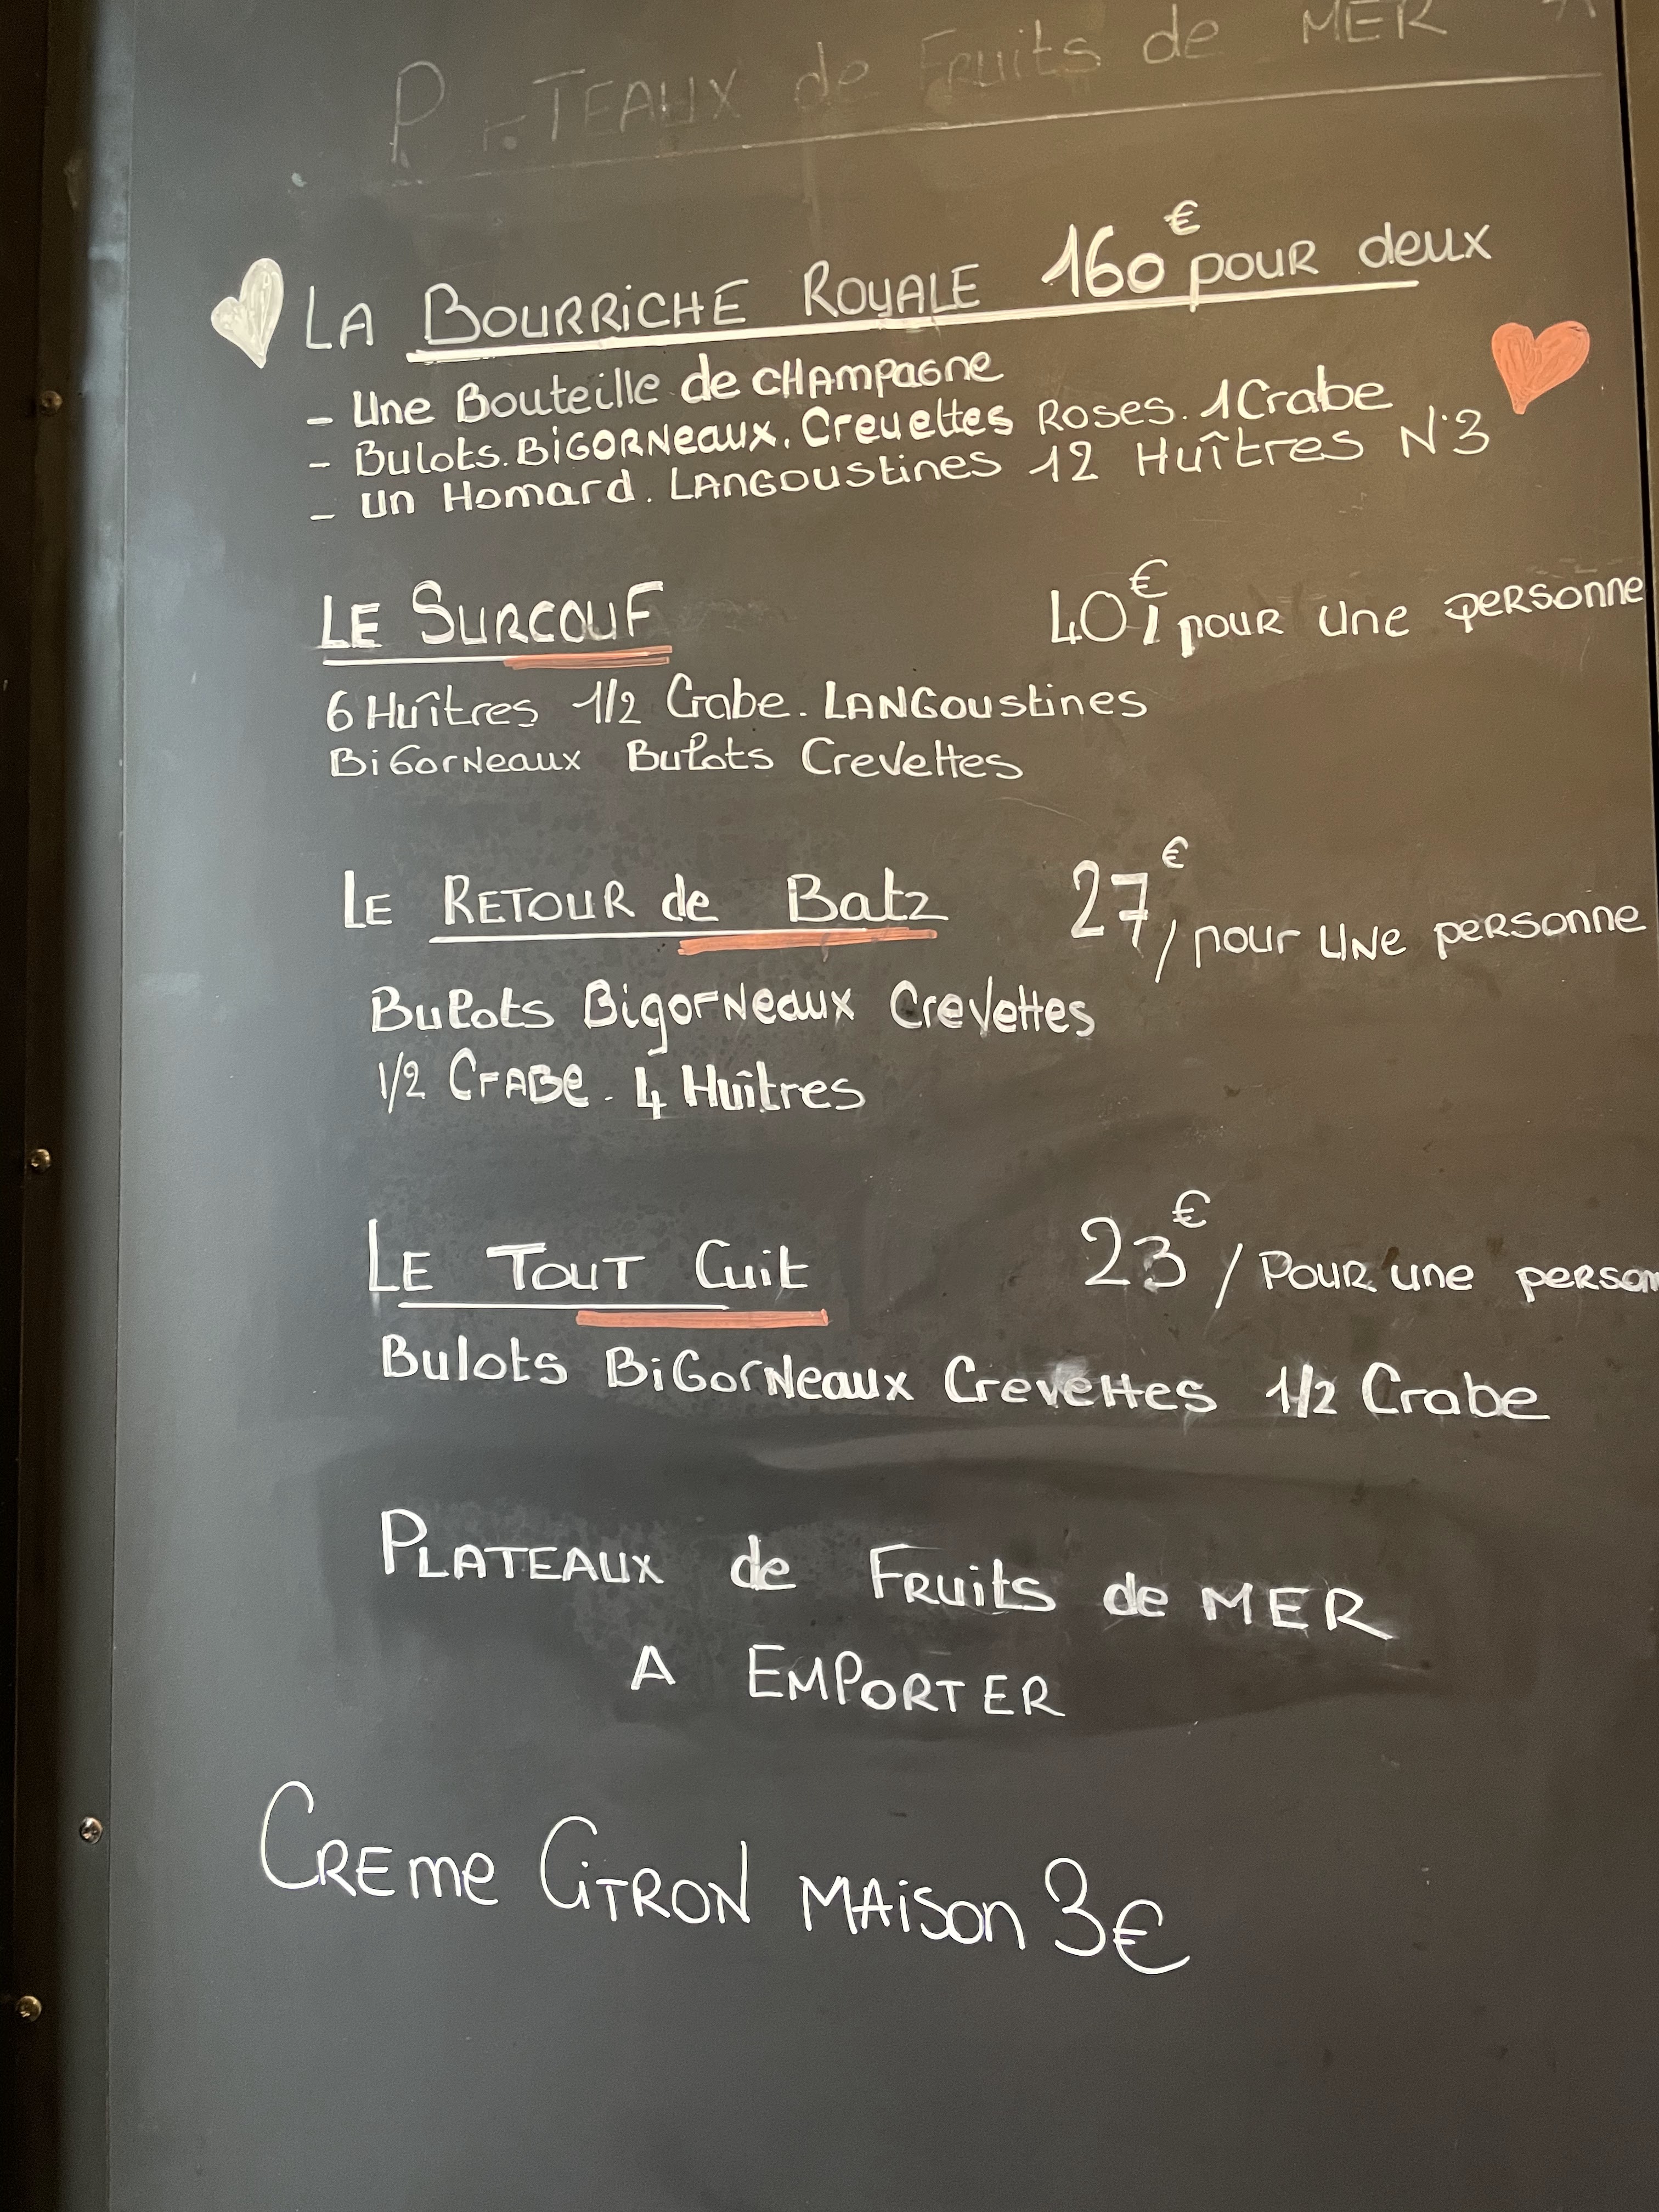 de Fruits de MER
LA BOURRiCHE ROYALE 160€ pour deux
- Une Bouteille de CHAmpagne
- Bulots. BiGORNeaux. Crevettes Roses. 1 Crabe
- un Homard. LANGOUStines 12 Huîtres N°3
LE SURCOUF 40€/ pour une personne
6 Huîtres 1/2 Crabe. LANGOUStines
BiGorNeaux Bulots Crevettes
LE RETOUR de Batz 27€/ pour UNe personne
Bulots BigorNeaux Crevettes
1/2 CrABe. 4 Huîtres
LE TOUT Cuit 23€/ POUR une person
Bulots BiGorNeaux Crevettes 1/2 Crabe
PLATEAUX de FRuits de MER
A EMPORTER
CREme CiTRON MAison 3€